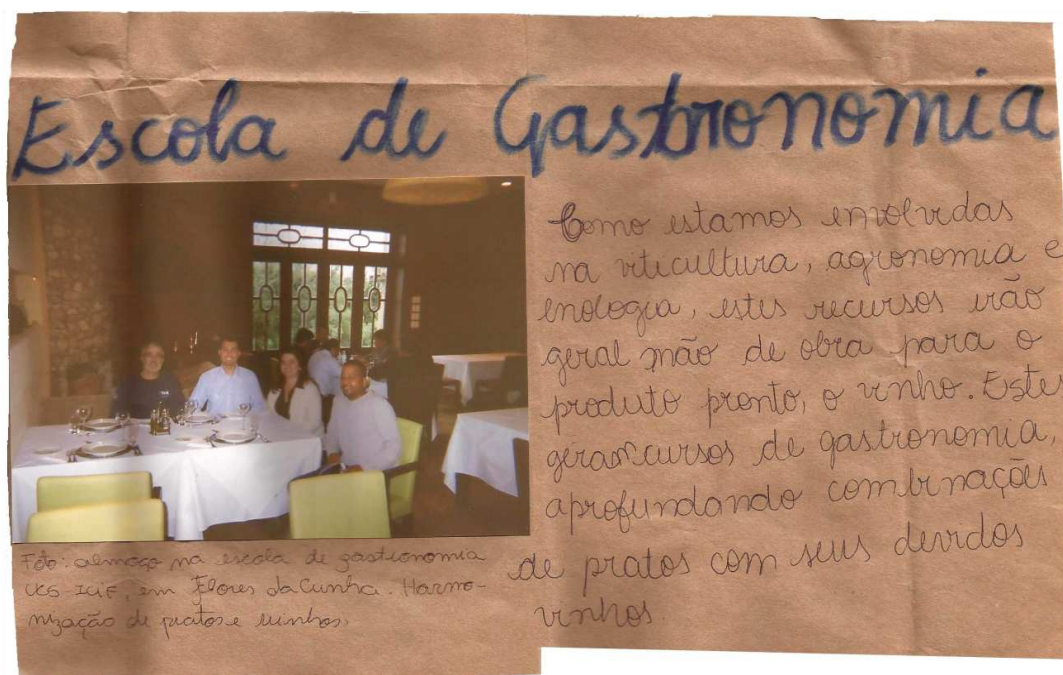 Escola de Gastronomia
Como estamos envolvidas
na viticultura, agronomia e
enologia, estes recursos irão
geral mão de obra para o
produto pronto, o vinho. Este
geram cursos de gastronomia,
aprofundando combinações
de pratos com seus devidos
vinhos.
Foto: almoço na escola de gastronomia
UCS-ICIF, em Flores da Cunha. Harmo-
nização de pratos e vinhos.